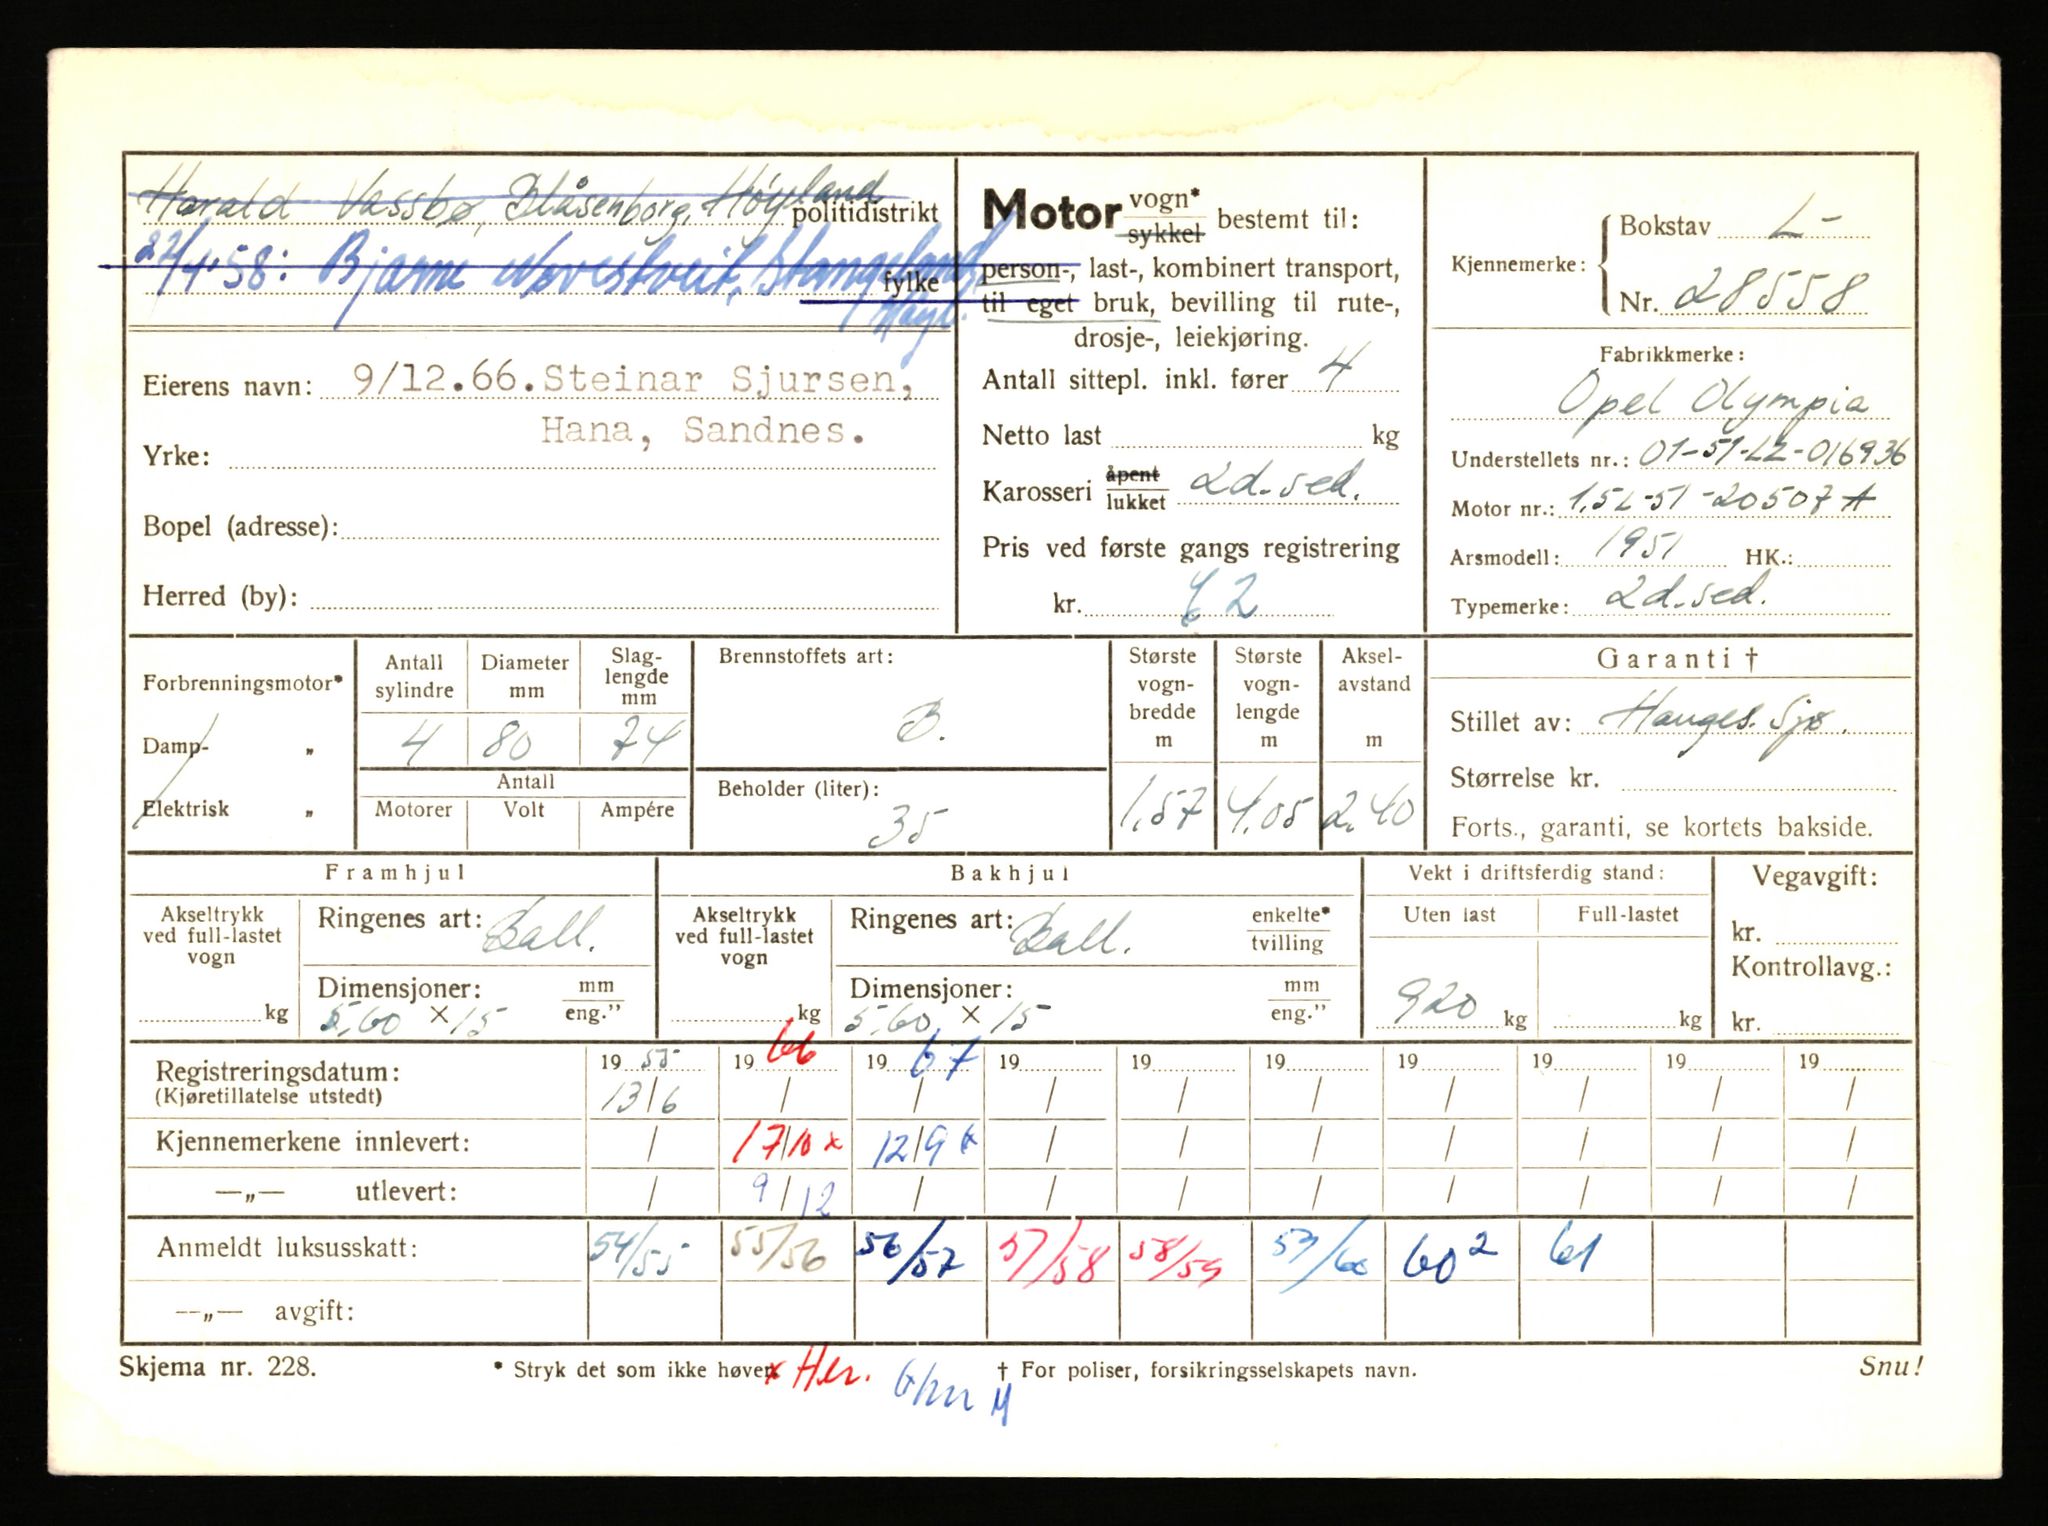 Harald Vassbø, Blåsenborg, Høyland politidistrikt
22/4.58: Bjarne Stangeland, fylke
Høyl.
Eierens navn: 9/12.66. Steinar Sjursen,
Hana, Sandnes.
Yrke:
Bopel (adresse):
Herred (by):
Motor vogn* sykkel bestemt til:
person-, last-, kombinert transport,
til eget bruk, bevilling til rute-,
drosje-, leiekjøring.
Antall sittepl. inkl. fører 4
Netto last kg
Karosseri åpent lukket 2d.sed.
Pris ved første gangs registrering
kr. 62
Kjennemerke: Bokstav L-
Nr. 28558
Fabrikkmerke:
Opel Olympia
Understellets nr.: 01-51-L2-016936
Motor nr.: 1,5L-51-20507A
Arsmodell: 1951 HK.:
Typemerke: 2d.sed.
Forbrenningsmotor*
Damp- „
Elektrisk „
Antall sylindre Diameter mm Slag-lengde mm
4 80 74
Antall
Motorer Volt Ampére
Brennstoffets art:
B.
Beholder (liter):
35
Største vogn-bredde m Største vogn-lengde m Aksel-avstand m
1,57 4,05 2,40
Garanti †
Stillet av: Hauges. Sjø.
Størrelse kr.
Forts., garanti, se kortets bakside.
Framhjul
Akseltrykk ved full-lastet vogn
kg
Ringenes art: Ball.
Dimensjoner: mm eng."
5,60 x 15
Bakhjul
Akseltrykk ved full-lastet vogn
kg
Ringenes art: Ball. enkelte* tvilling
Dimensjoner: mm eng."
5,60 x 15
Vekt i driftsferdig stand:
Uten last Full-lastet
920 kg kg
Vegavgift:
kr.
Kontrollavg.:
kr.
Registreringsdatum: 19 55 19 66 19 67 19 19 19 19 19 19 19
(Kjøretillatelse utstedt) 13/6 / / / / / / / / /
Kjennemerkene innlevert: / 17/10 x 12/9 x / / / / / / /
—„— utlevert: / 9/12 / / / / / / / /
Anmeldt luksusskatt: 54/55 55/56 56/57 57/58 58/59 59/60 60² 61
—„— avgift:
Skjema nr. 228. * Stryk det som ikke høver x Her. † For poliser, forsikringsselskapets navn. Snu!